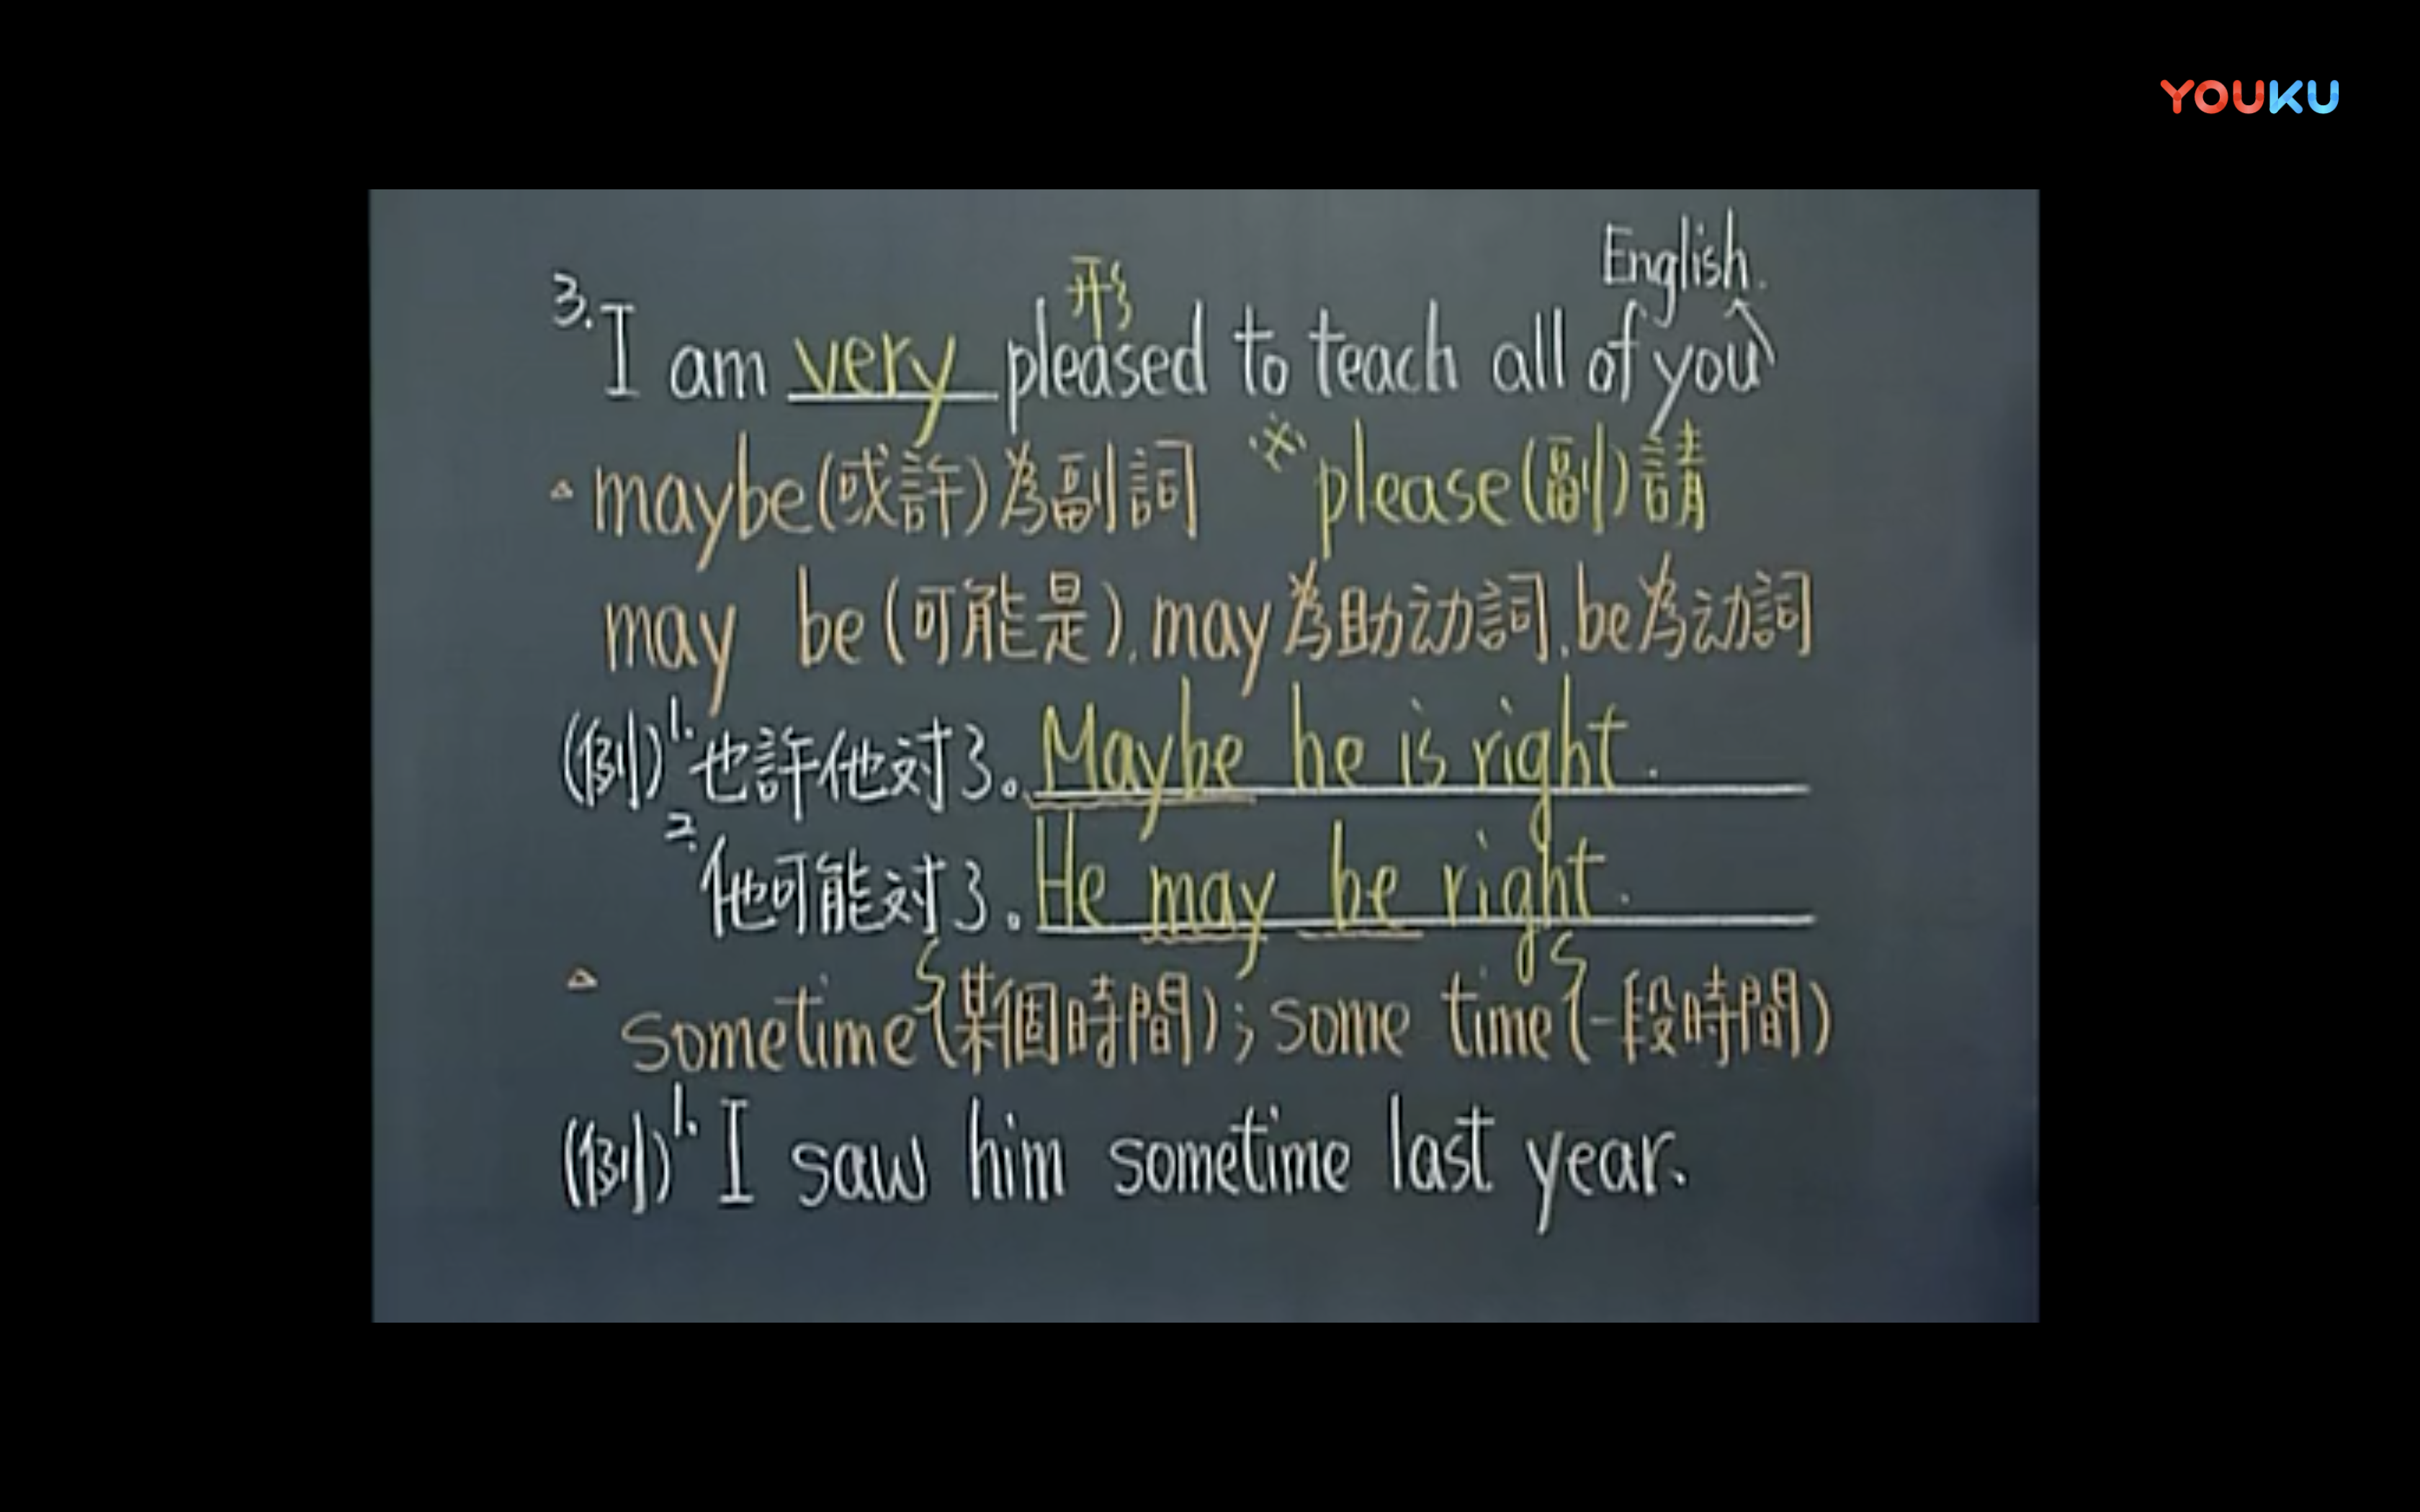 YOUKU
English.
形
3. I am very pleased to teach all of you
△ maybe(或許)為副詞 ※ please(副)請
may be(可能是),may為助动詞,be為动詞
(例)1.也許他対了。Maybe he is right.
2.他可能対了。He may be right.
△ sometime(某個時間);some time(一段時間)
(例)1. I saw him sometime last year.